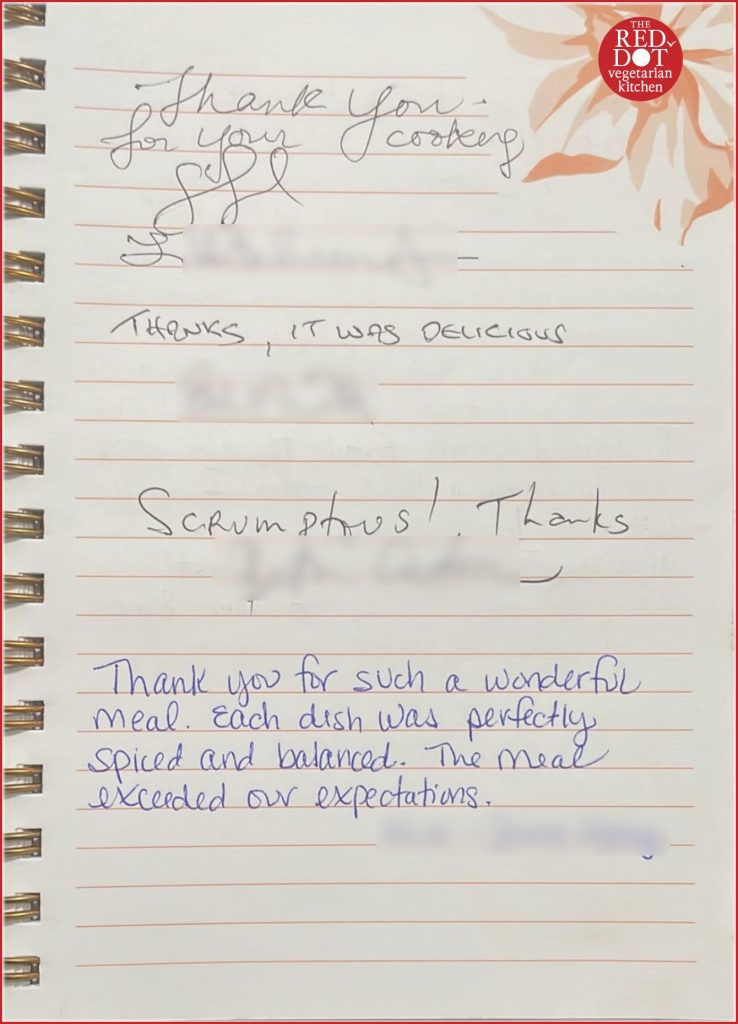 THE
RED
DOT
vegetarian
kitchen
Thank You.
for your cooking
THANKS, IT WAS DELICIOUS
SCRUMPTIOUS! Thanks
Thank you for such a wonderful
meal. Each dish was perfectly
spiced and balanced. The meal
exceeded our expectations.